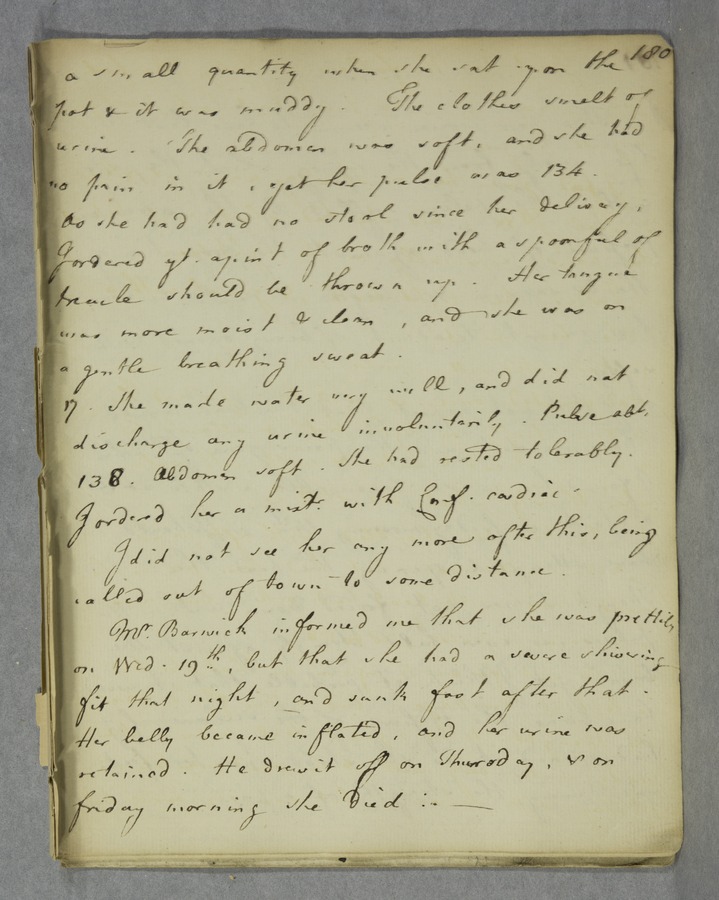 180
a small quantity when she sat upon the
pot & it was muddy. The clothes smelt of
urine. The abdomen was soft, and she had
no pain in it, yet her pulse was 134.
As she had had no stool since her delivery,
I ordered yt. a pint of broth with a spoonful of
treacle should be thrown up. Her tongue
was more moist & clean, and she was on
a gentle breathing sweat.
17. She made water very well, and did not
discharge any urine involuntarily. Pulse abt.
138. Abdomen soft. She had rested tolerably.
I ordered her a mixtr. with Conf. cardiac.
I did not see her any more after this, being
called out of town to some distance.
Mr. Barwick informed me that she was prettily
on Wed. 19th, but that she had a severe shivering
fit that night, and sunk fast after that.
Her belly became inflated, and her urine was
retained. He drew it off on Thursday, & on
friday morning she Died :. —